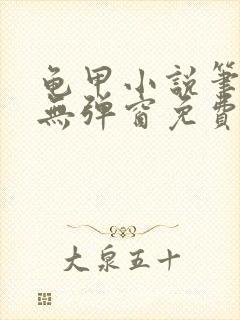 龟甲小説筆
無彈窗免費
大泉五十